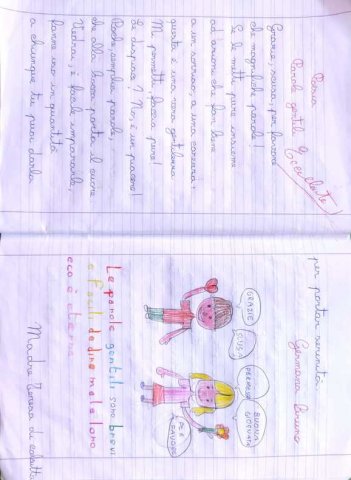 Poesia
Parole gentili
Eccellente!
Grazie, scusa, per favore
che magniche parole!
Se le metti pure insieme
ad azioni che fan bene
a un sorriso, a una carezza,
questa è una vera gentilezza.
Mi permette, faccia pure!
Le dispiace? No, è un piacere!
Poche, semplici parole,
che alla buona porta il cuore
Vedrai, è facile impararle,
farne uso in quantità
a chiunque tu puoi darla
per portar serenità.
Germana Bruno
GRAZIE
SCUSA
PERMESSO
BUONA
GIORNATA
PER
FAVORE
Le parole gentili sono brevi
e facili da dire ma la loro
eco è eterna
Madre Teresa di Calcutta